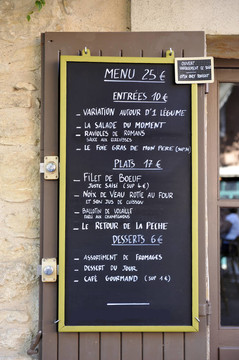 MENU 25 €
ENTRÉES 10 €
– VARIATION AUTOUR D'1 LÉGUME
– LA SALADE DU MOMENT
– RAVIOLES DE ROMANS
SAUCE AUX ECREVISSES
– LE FOIE GRAS DE MON PÈRE
PLATS 17 €
– FILET DE BOEUF
JUSTE SAISI (SUP 4€)
– NOIX DE VEAU ROTIE AU FOUR
ET SON JUS DE CUISSON
– BALLOTIN DE VOLAILLE
FARCI AUX CHAMPIGNONS
– LE RETOUR DE LA PÊCHE
DESSERTS 6 €
– ASSORTIMENT DE FROMAGES
– DESSERT DU JOUR
– CAFÉ GOURMAND (SUP 1€)
OUVERT